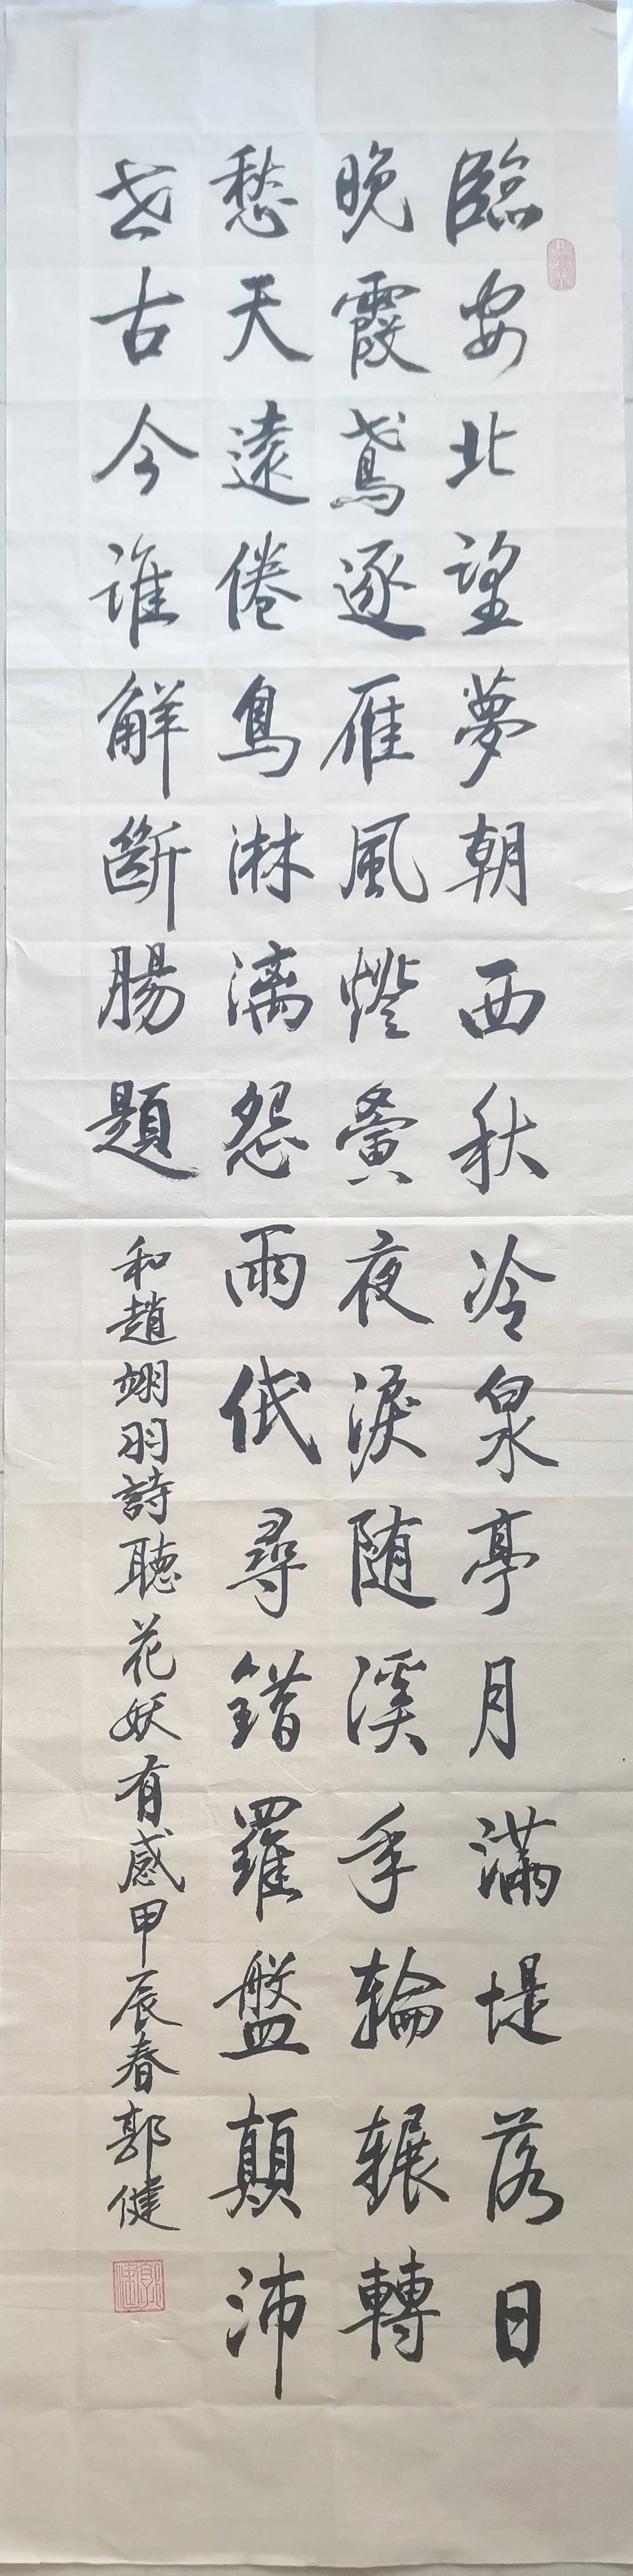 臨安北望夢朝西秋冷泉亭月滿堤落日
晚霞鳶逐雁風燈黌夜淚随溪年輪輾轉
愁天遠倦鳥淋漓怨雨低尋錯羅盤顛沛
世古今誰解斷腸題
和趙翊羽詩聽花妖有感甲辰春郭健